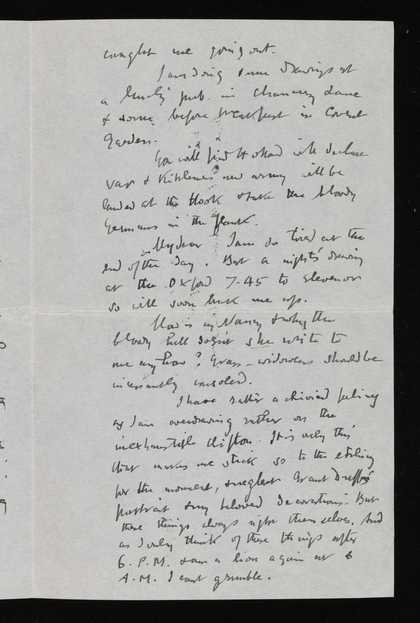 caught me going out.
I am doing some drawings at
a lovely pub in Chancery Lane
& some before breakfast in Covent
Garden.
You will find Holland will declare
war & Kitchener's new army will be
landed at the Hook & take the bloody
Germans in the flank.
My dear I am so tired at the
end of the day. But a night's drawing
at the Oxford 7.45 to eleven or
so will soon buck me up.
How is my Nancy & why the
bloody hell doesn't she write to
me anyhow? Grass-widowers should be
incessantly consoled.
I have rather a chivied feeling
as I am overdrawing rather on the
inexhaustible Clifton. It is only this
that makes me stick so to the etching
for the moment, & neglect Grant
portrait & my beloved decorations. But
these things always right themselves, and
as I only think of these things after
6. P.M. & am a lion again at 6
A.M. I cant grumble.